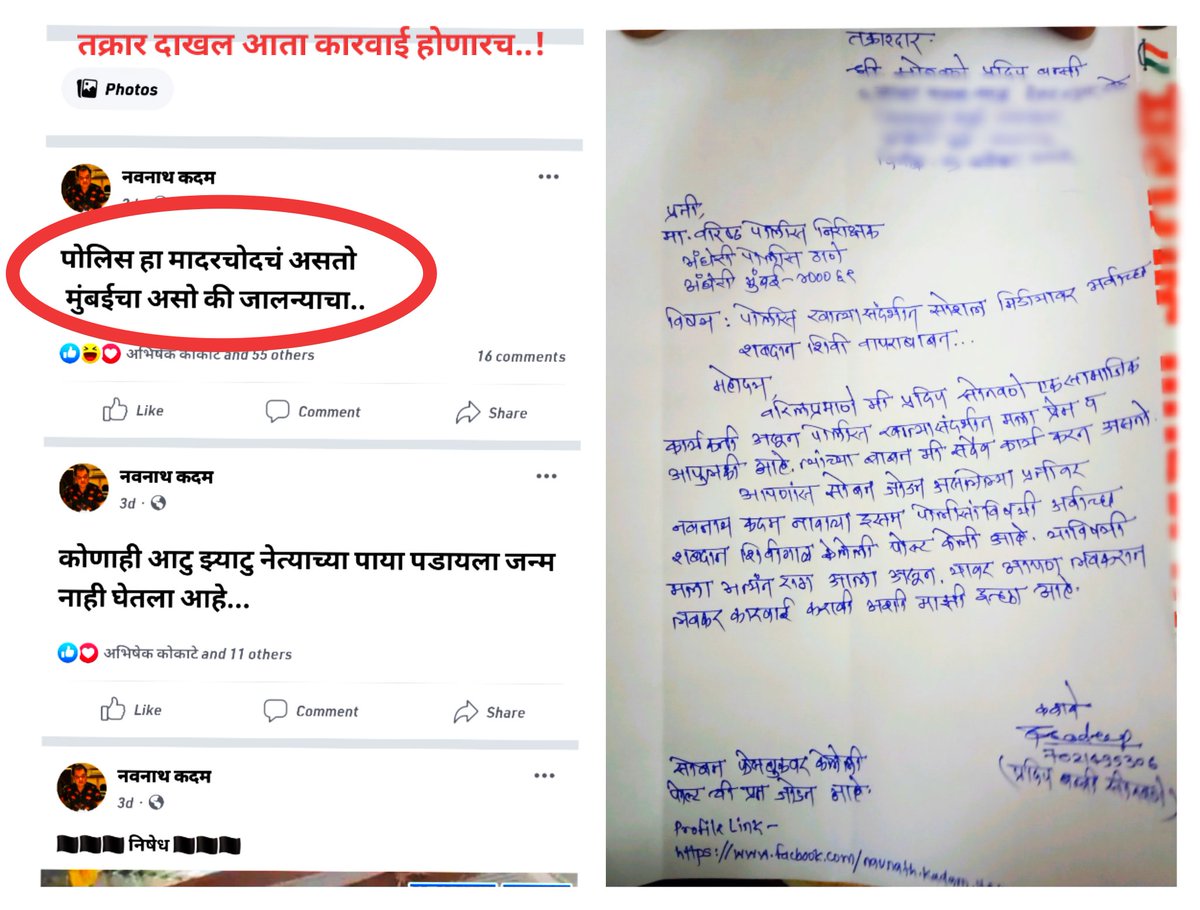 तक्रार दाखल आता कारवाई होणारच..!
Photos
नवनाथ कदम
पोलिस हा मादरचोदचं असतो
मुंबईचा असो की जालन्याचा..
अभिषेक कोकाटे and 55 others
16 comments
Like Comment Share
नवनाथ कदम
3d
कोणाही आटु झ्याटु नेत्याच्या पाया पडायला जन्म
नाही घेतला आहे...
अभिषेक कोकाटे and 11 others
Like Comment Share
नवनाथ कदम
3d
🏴🏴🏴 निषेध 🏴🏴🏴
तक्रारदार
श्री सोनवणे प्रदिप
प्रती,
मा. वरिष्ठ पोलीस निरिक्षक
अंधेरी पोलीस ठाणे
अंधेरी मुंबई - ४०००६९
विषय : पोलीस खात्यासंदर्भात सोशल मिडीयावर अर्वाच्च
शब्दात शिवी वापराबाबत...
महोदय,
वरिलप्रमाणे मी प्रदिप सोनवणे एक सामाजिक
कार्यकर्ता असून पोलीस खात्यासंदर्भात मला प्रेम व
आपुलकी आहे. त्यांच्या बाबत मी सदैव कार्य करत असतो.
आपणांस सोबत जोडत असलेल्या प्रतीवर
नवनाथ कदम नावाचा इसम पोलीसांविषयी अर्वाच्च
शब्दात शिवीगाळ केलेली पोस्ट केली आहे. याविषयी
मला अत्यंत राग आला असून, यावर आपण लवकरात
लवकर कारवाई करावी अशी माझी इच्छा आहे.
कळावे
Pradeep
(प्रदिप सोनवणे)
सोबत फेसबुकवर केलेली
पोस्ट ची प्रत जोडत आहे.
Profile Link -
https://www.facbook.com/navnath.kadam